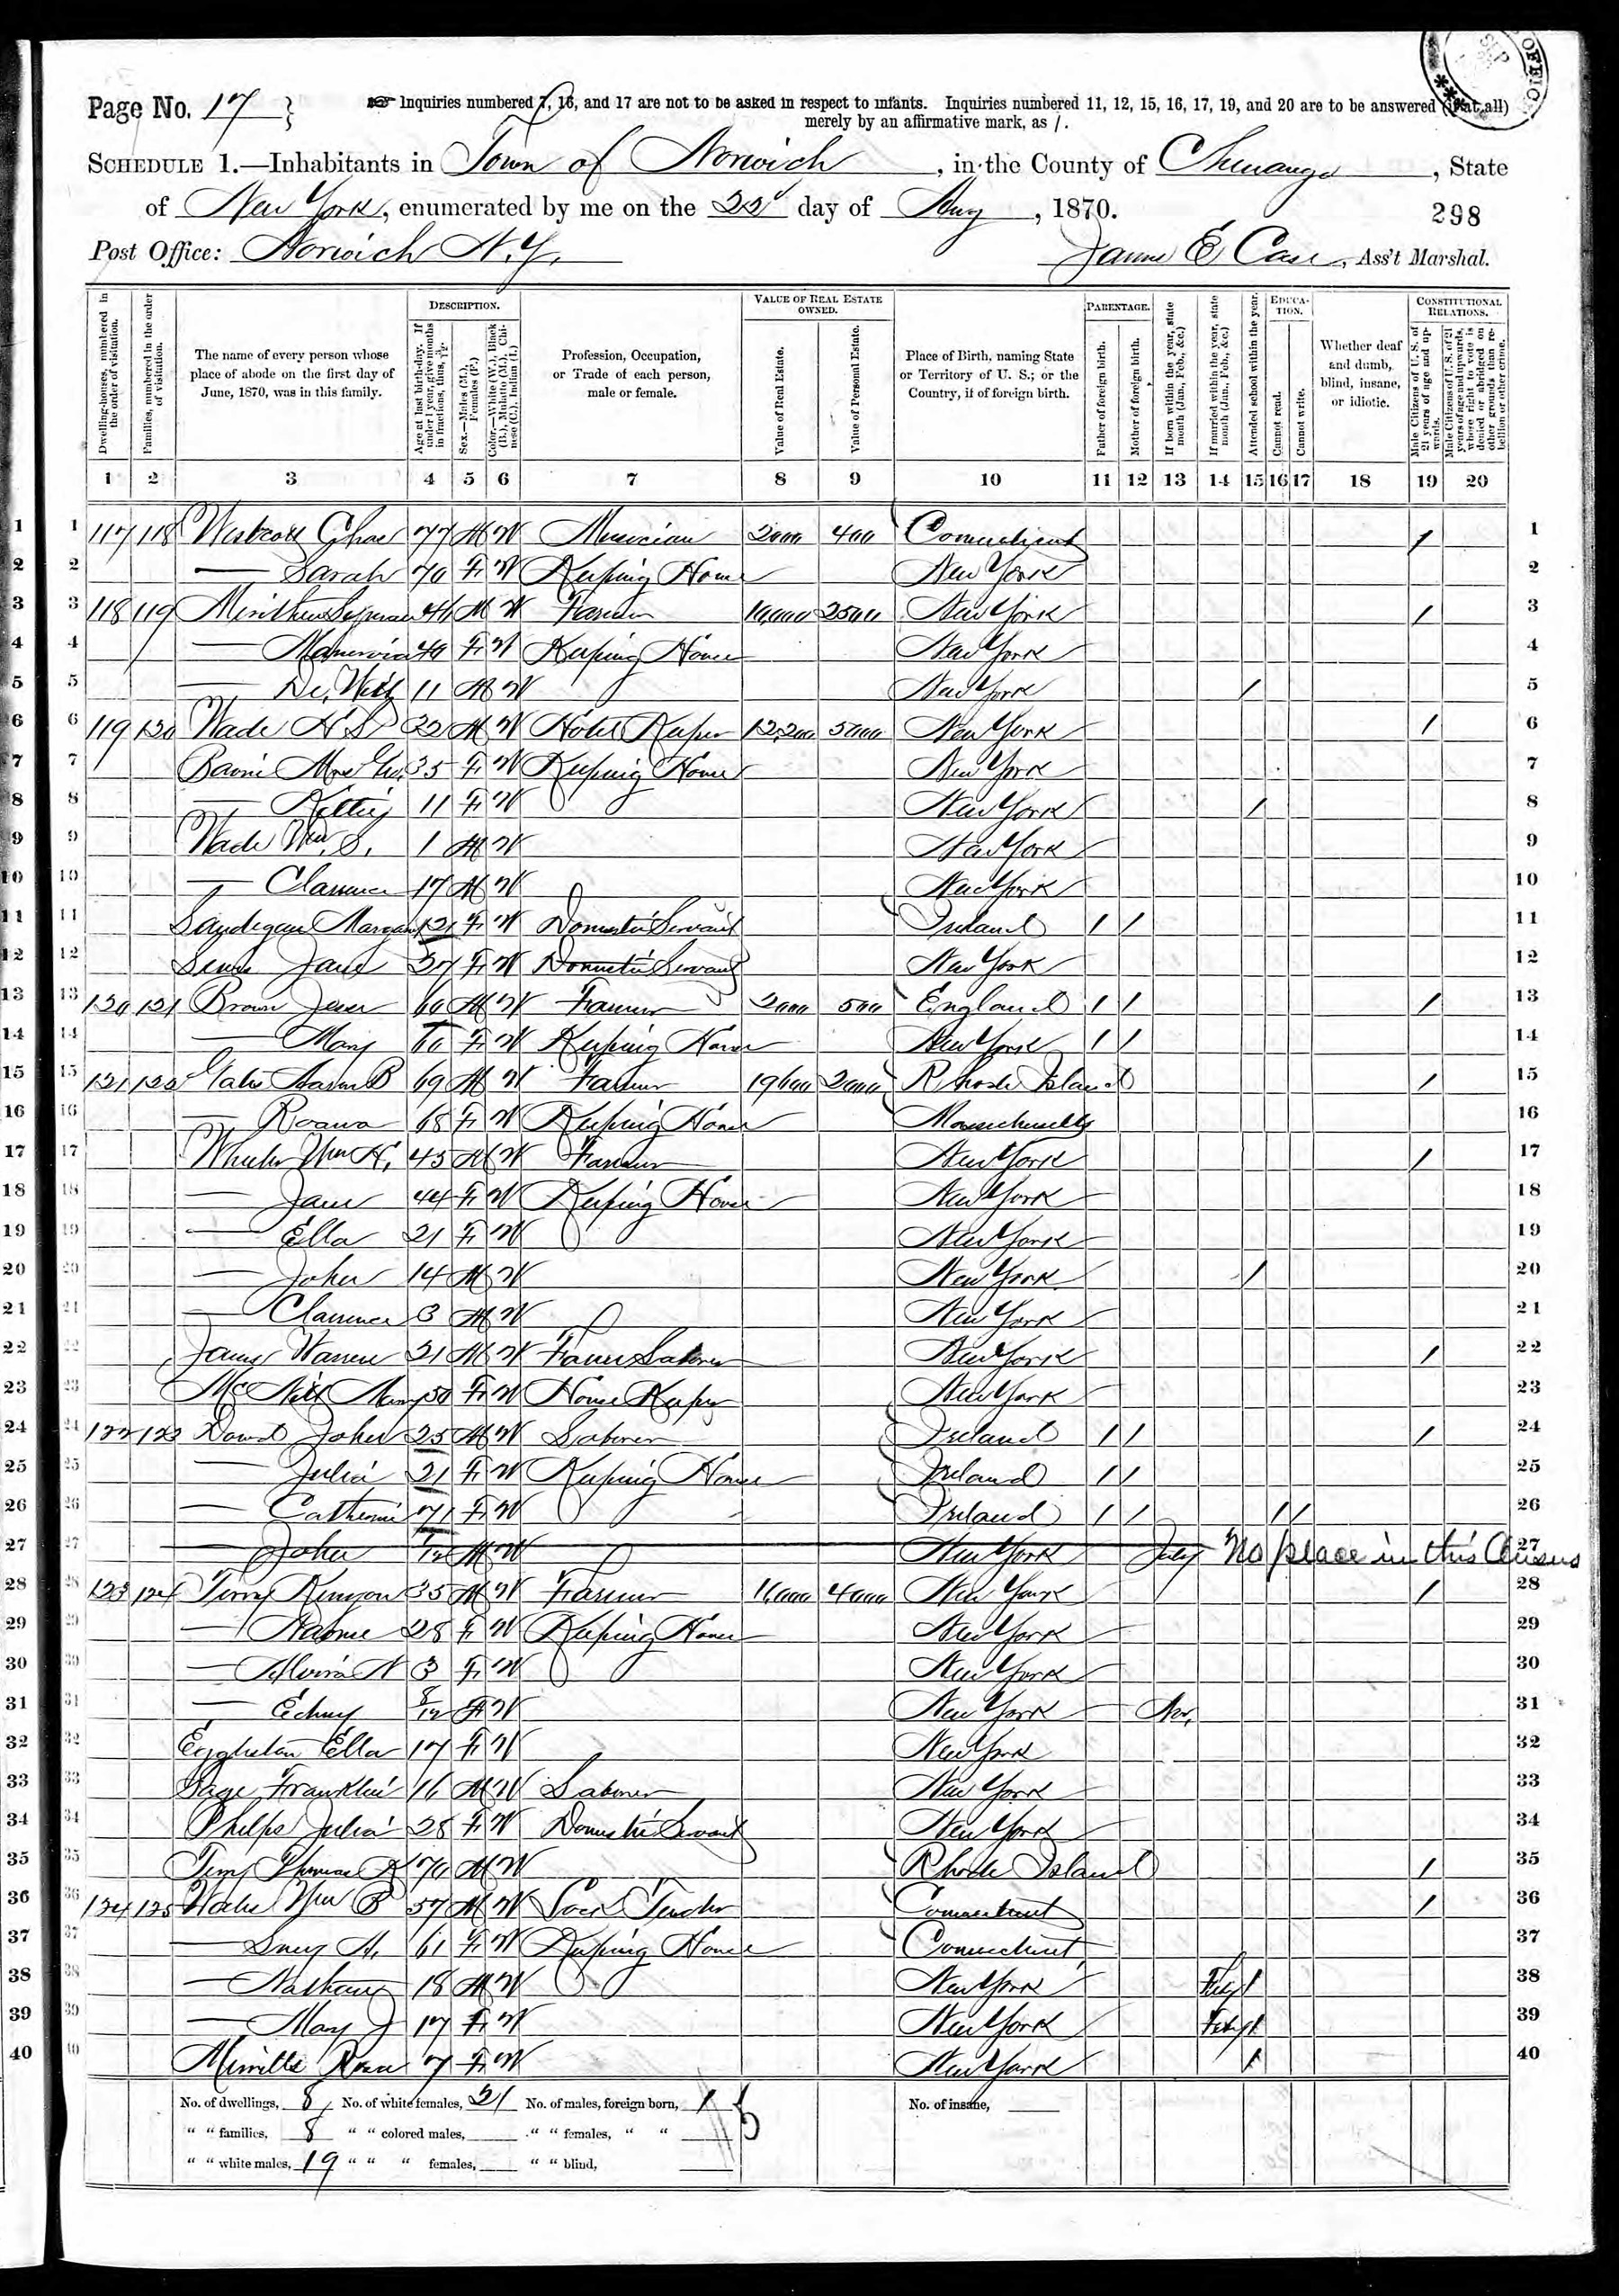 Page No. 17
Inquiries numbered 7, 16, and 17 are not to be asked in respect to infants. Inquiries numbered 11, 12, 15, 16, 17, 19, and 20 are to be answered (if at all)
merely by an affirmative mark, as /.
SCHEDULE 1.—Inhabitants in Town of Norwich, in the County of Chenango, State
of New York, enumerated by me on the 22d day of Aug, 1870.
298
Post Office: Norwich N.Y.
James E Case, Ass't Marshal.
Dwelling-houses, numbered in the order of visitation.
Families, numbered in the order of visitation.
The name of every person whose place of abode on the first day of June, 1870, was in this family.
DESCRIPTION.
Age at last birth-day. If under 1 year, give months in fractions, thus, 3/12.
Sex.—Males (M.), Females (F.)
Color.—White (W.), Black (B.), Mulatto (M.), Chinese (C.), Indian (I.)
Profession, Occupation, or Trade of each person, male or female.
VALUE OF REAL ESTATE OWNED.
Value of Real Estate.
Value of Personal Estate.
Place of Birth, naming State or Territory of U. S.; or the Country, if of foreign birth.
PARENTAGE.
Father of foreign birth.
Mother of foreign birth.
If born within the year, state month (Jan., Feb., &c.)
If married within the year, state month (Jan., Feb., &c.)
Attended school within the year.
EDUCATION.
Cannot read.
Cannot write.
Whether deaf and dumb, blind, insane, or idiotic.
CONSTITUTIONAL RELATIONS.
Male Citizens of U. S. of 21 years of age and upwards.
Male Citizens of U. S. of 21 years of age and upwards, where right to vote is denied or abridged on other grounds than rebellion or other crime.
1 2 3 4 5 6 7 8 9 10 11 12 13 14 15 16 17 18 19 20
1 1 117 118 Chas 77 M W Musician 2000 400 Connecticut / 1
2 2 — Sarah 70 F W Keeping House New York 2
3 3 118 119 46 M W Farmer 10,000 2500 New York / 3
4 4 — 40 F W Keeping House New York 4
5 5 — De Witt 11 M W New York / 5
6 6 119 120 Wade H S 32 M W Hotel Keeper 12,200 5000 New York / 6
7 7 Mrs 35 F W Keeping House New York 7
8 8 — Kittie 11 F W New York / 8
9 9 Wade Wm. S. 1 M W New York 9
10 10 — Clarence 17 M W New York 10
11 11 Margaret 21 F W Domestic Servant Ireland / / 11
12 12 Jane 27 F W Domestic Servant New York 12
13 13 120 121 Brown Jesse 60 M W Farmer 2000 500 England / / / 13
14 14 — Mary 60 F W Keeping House New York / / 14
15 15 121 122 Gates Aaron B 69 M W Farmer 19600 2000 Rhode Island / 15
16 16 — 68 F W Keeping House Massachusetts 16
17 17 Wheeler Wm H. 45 M W Farmer New York / 17
18 18 — Jane 44 F W Keeping House New York 18
19 19 — Ella 21 F W New York 19
20 20 — John 14 M W New York / 20
21 21 — Clarence 3 M W New York 21
22 22 James Warren 21 M W Farm Laborer New York / 22
23 23 Mary 50 F W House Keeper New York 23
24 24 122 123 John 25 M W Laborer Ireland / / / 24
25 25 — Julia 21 F W Keeping House Ireland / / 25
26 26 — Catherine 71 F W Ireland / / / / 26
27 27 — John 1/12 M W New York July No place in this Census 27
28 28 123 124 Terry Kenyon 35 M W Farmer 11,000 4000 New York / 28
29 29 — 28 F W Keeping House New York 29
30 30 — N 3 F W New York 30
31 31 — 8/12 W New York Nov. 31
32 32 Ella 17 F W New York 32
33 33 Sage Franklin 16 M W Laborer New York 33
34 34 Phelps Julia 28 F W Domestic Servant New York 34
35 35 Terry Thomas K 70 M W Rhode Island / 35
36 36 124 125 Wm B 57 M W Lock Tender Connecticut / 36
37 37 — Lucy A. 61 F W Keeping House Connecticut 37
38 38 — Nathan 18 M W New York Feby / 38
39 39 — Mary J 17 F W New York Feby / 39
40 40 7 F W New York / 40
No. of dwellings, 8 No. of white females, 21 No. of males, foreign born, No. of insane,
" " families, 8 " " colored males, " " females, " "
" " white males, 19 " " " females, " " blind,